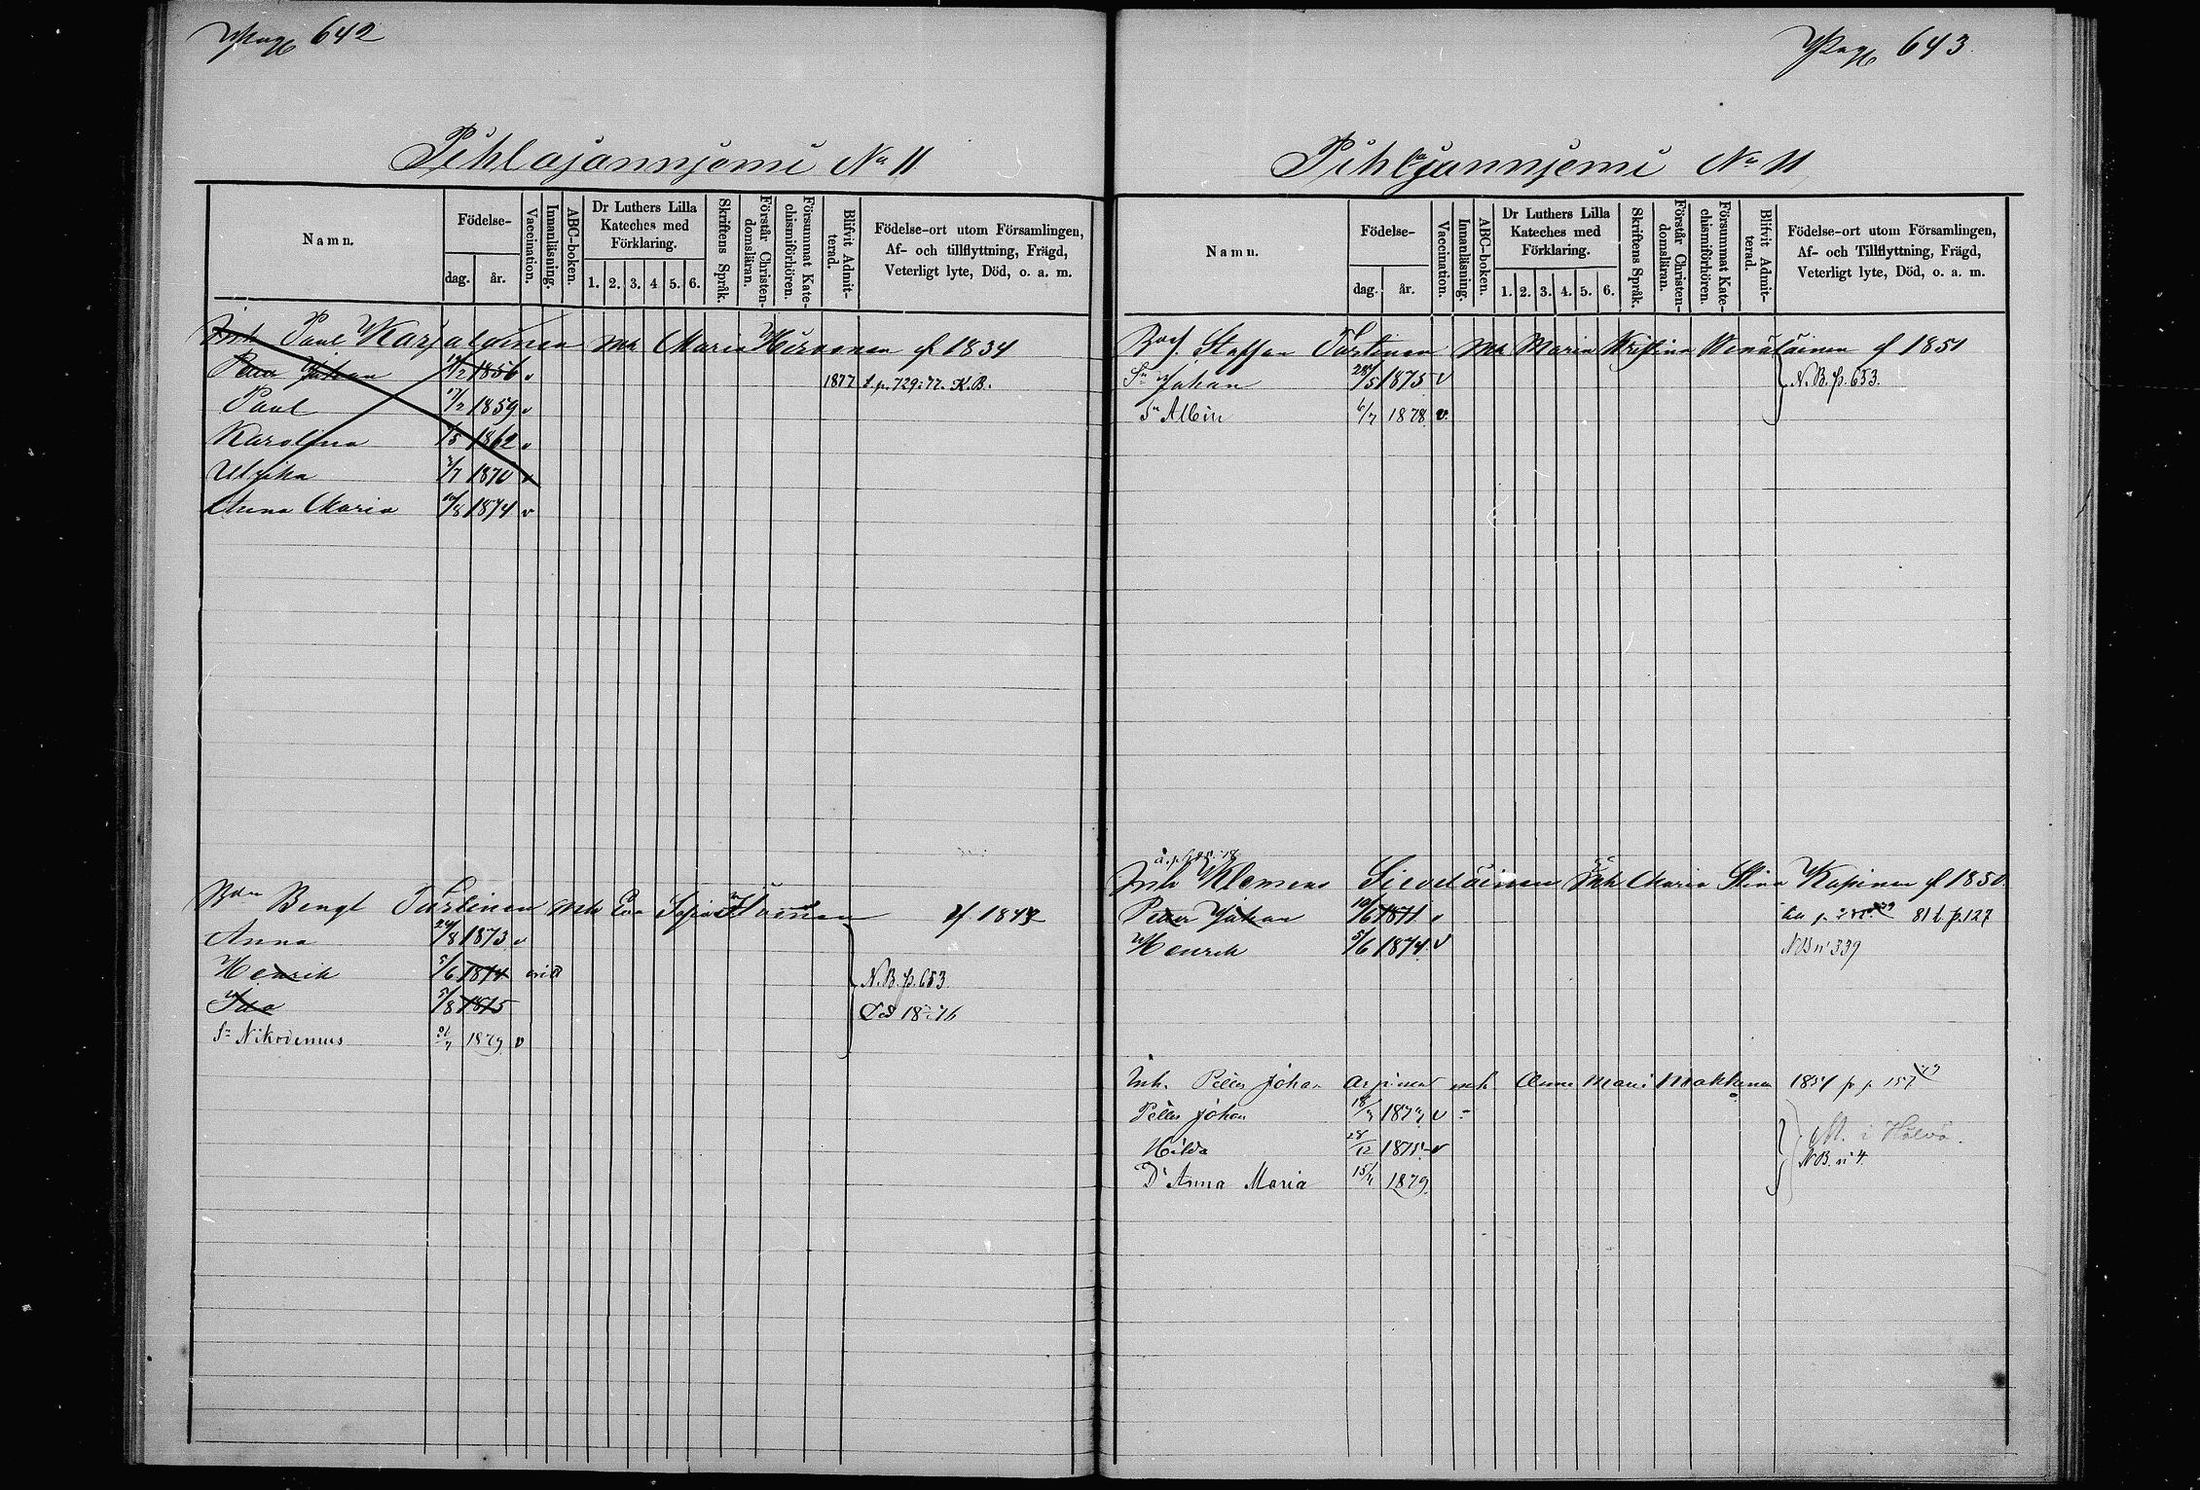 Pag 642
Pihlajanniemi No 11
Namn.
Födelse-
dag.
år.
Vaccination.
Innanläsning.
ABC-boken.
Dr Luthers Lilla Kateches med Förklaring.
1. 2. 3. 4 5. 6.
Skriftens Språk.
Förstår Christen-domsläran.
Försummat Kate-chismiförhören.
Blifvit Admit-terad.
Födelse-ort utom Församlingen,
Af- och tillflyttning, Frägd,
Veterligt lyte, Död, o. a. m.
Inh Paul Karjalainen mh Maria Hirvonen f 1834
Petter Johan 1856 v 1877 t. p. 729: 77. K.B.
Paul 17/2 1859 v
Karolina 1862 v
Ulrika 1870 v
Anna Maria 1874 v
Bdn Bengt Turtinen mh Eva Sofia f 184
Anna 24/8 1873 v
Henrik 5/6 1874 N.B. p. 653
Ida 5/8 1875 Död 76
Sn Nikodemus 1879 v
Pag 643
Pihlajanniemi No 11
Namn.
Födelse-
dag.
år.
Vaccination.
Innanläsning.
ABC-boken.
Dr Luthers Lilla Kateches med Förklaring.
1. 2. 3. 4. 5. 6.
Skriftens Språk.
Förstår Christen-domsläran.
Försummat Kate-chismiförhören.
Blifvit Admit-terad.
Födelse-ort utom Församlingen,
Af- och Tillflyttning, Frägd,
Veterligt lyte, Död, o. a. m.
Staffan Turtinen mh Maria Kristina Venäläinen f 1851
Sn Johan 28/5 1875 v N.B. p. 653.
Sn Albin 6/7 1878 v
Inh Klemens Sirviläinen mh Maria Stina Kapinen f 1850
Petter Johan 10/6 1871 v 81 t. p. 127
Henrik 5/6 1874 v NB no 339
Inh. Petter Johan mh Anna Mari Makkonen 1851 p. 157
Petter Johan 18/3 1873 v
Hilda 28/12 1875 v i Hölvä.
N.B. no 4.
Dr Anna Maria 15/4 1879